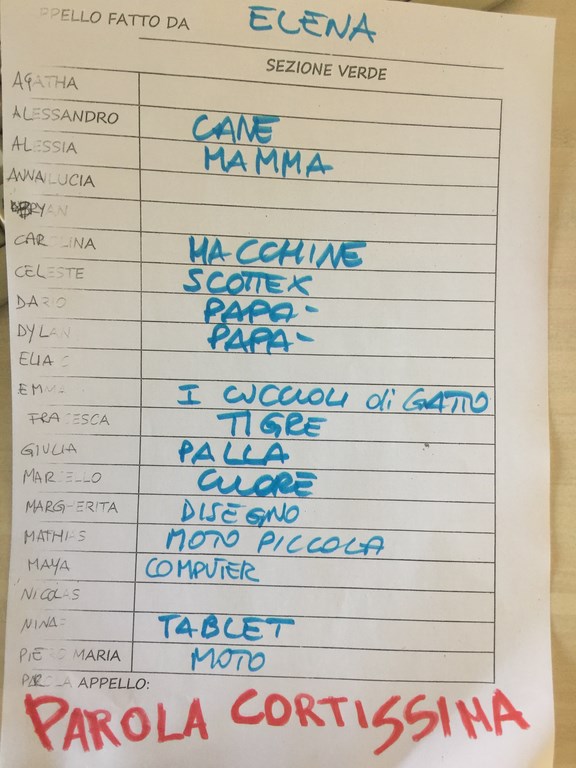 APPELLO FATTO DA ELENA
SEZIONE VERDE
AGATHA
ALESSANDRO CANE
ALESSIA MAMMA
ANNALUCIA
CAROLINA MACCHINE
CELESTE SCOTTEX
DARIO PAPA-
DYLAN PAPA-
ELIA
EMMA I CUCCIOLI di GATTO
FRANCESCA TIGRE
GIULIA PALLA
MARCELLO CUORE
MARGHERITA DISEGNO
MATHIAS MOTO PICCOLA
MAYA COMPUTER
NICOLAS
NINA TABLET
PIERO MARIA MOTO
PAROLA APPELLO:
PAROLA CORTISSIMA